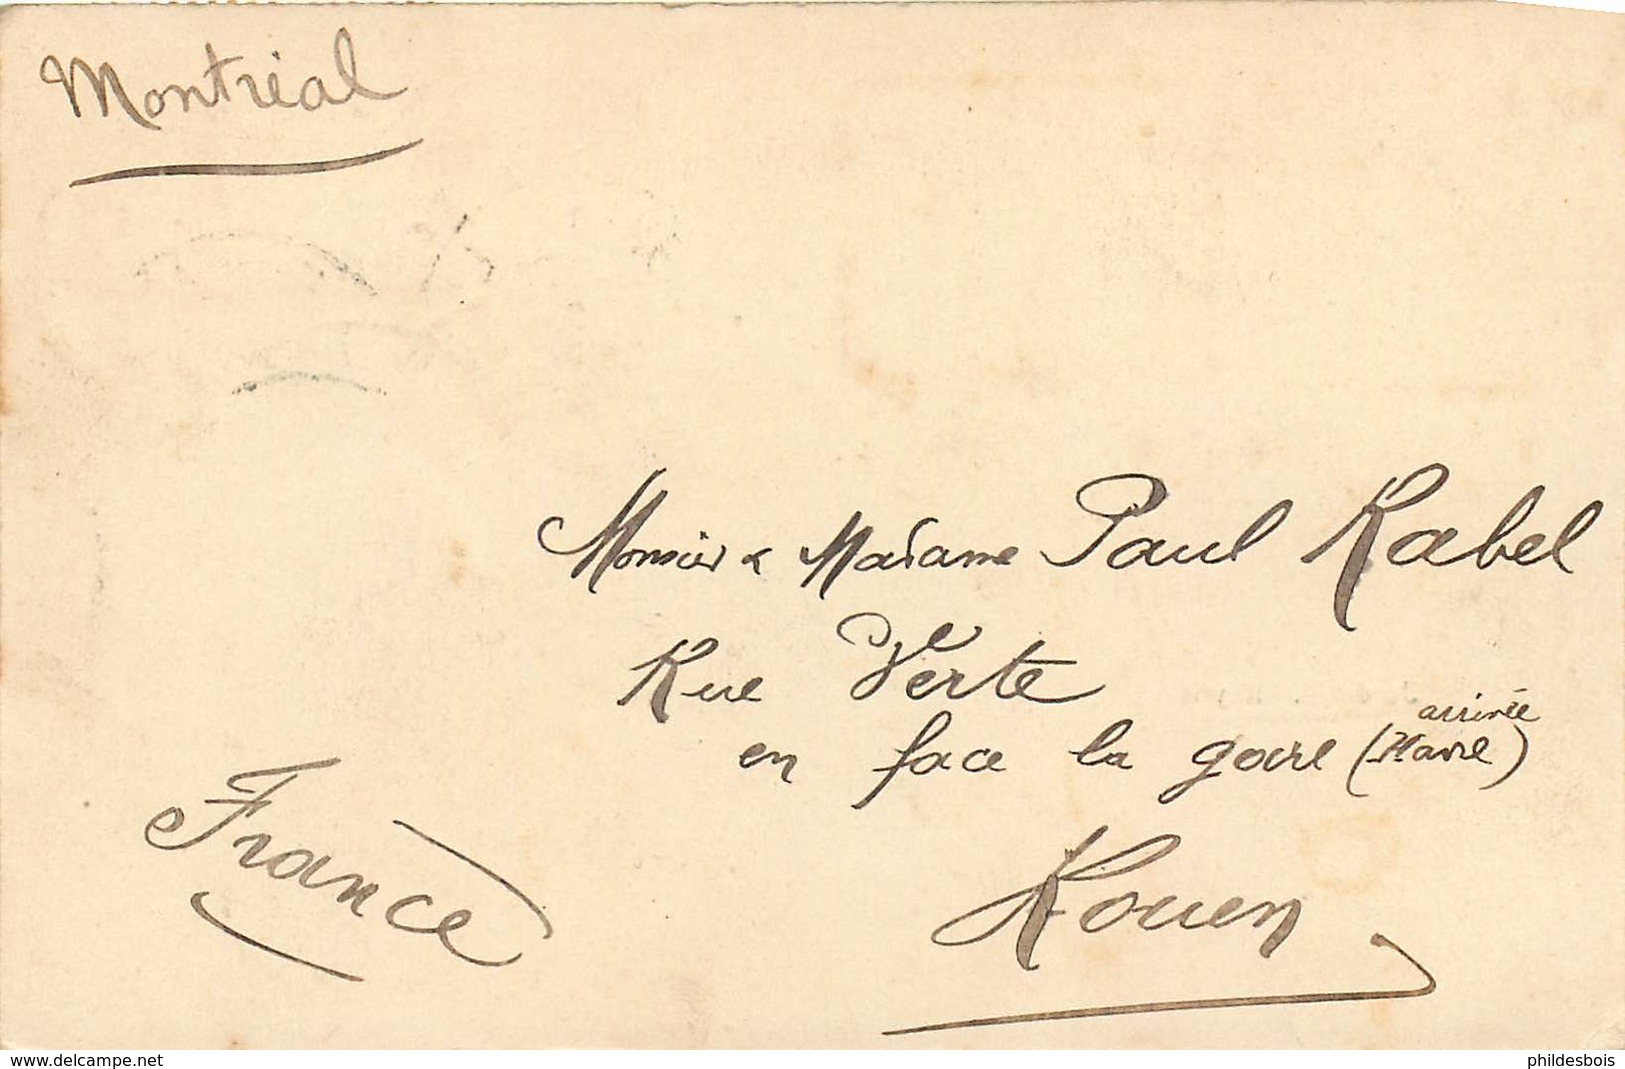 Montréal
Monsieur & Madame Paul Rabel
Rue Verte
en face la gare (Havre)
arrivée
France
Rouen
www.delcampe.net
phildesbois